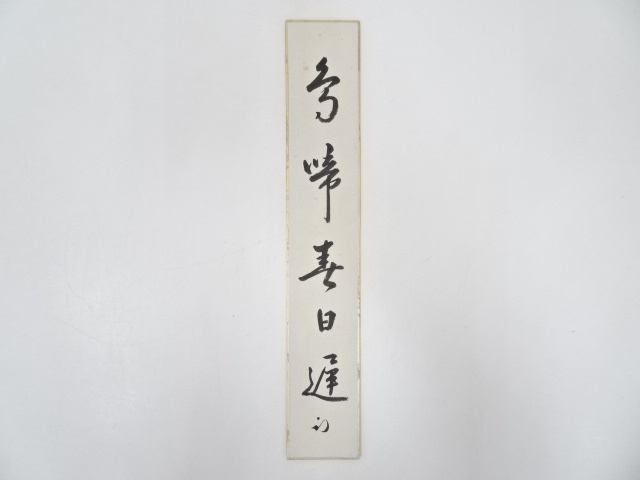 鳥啼春日遅